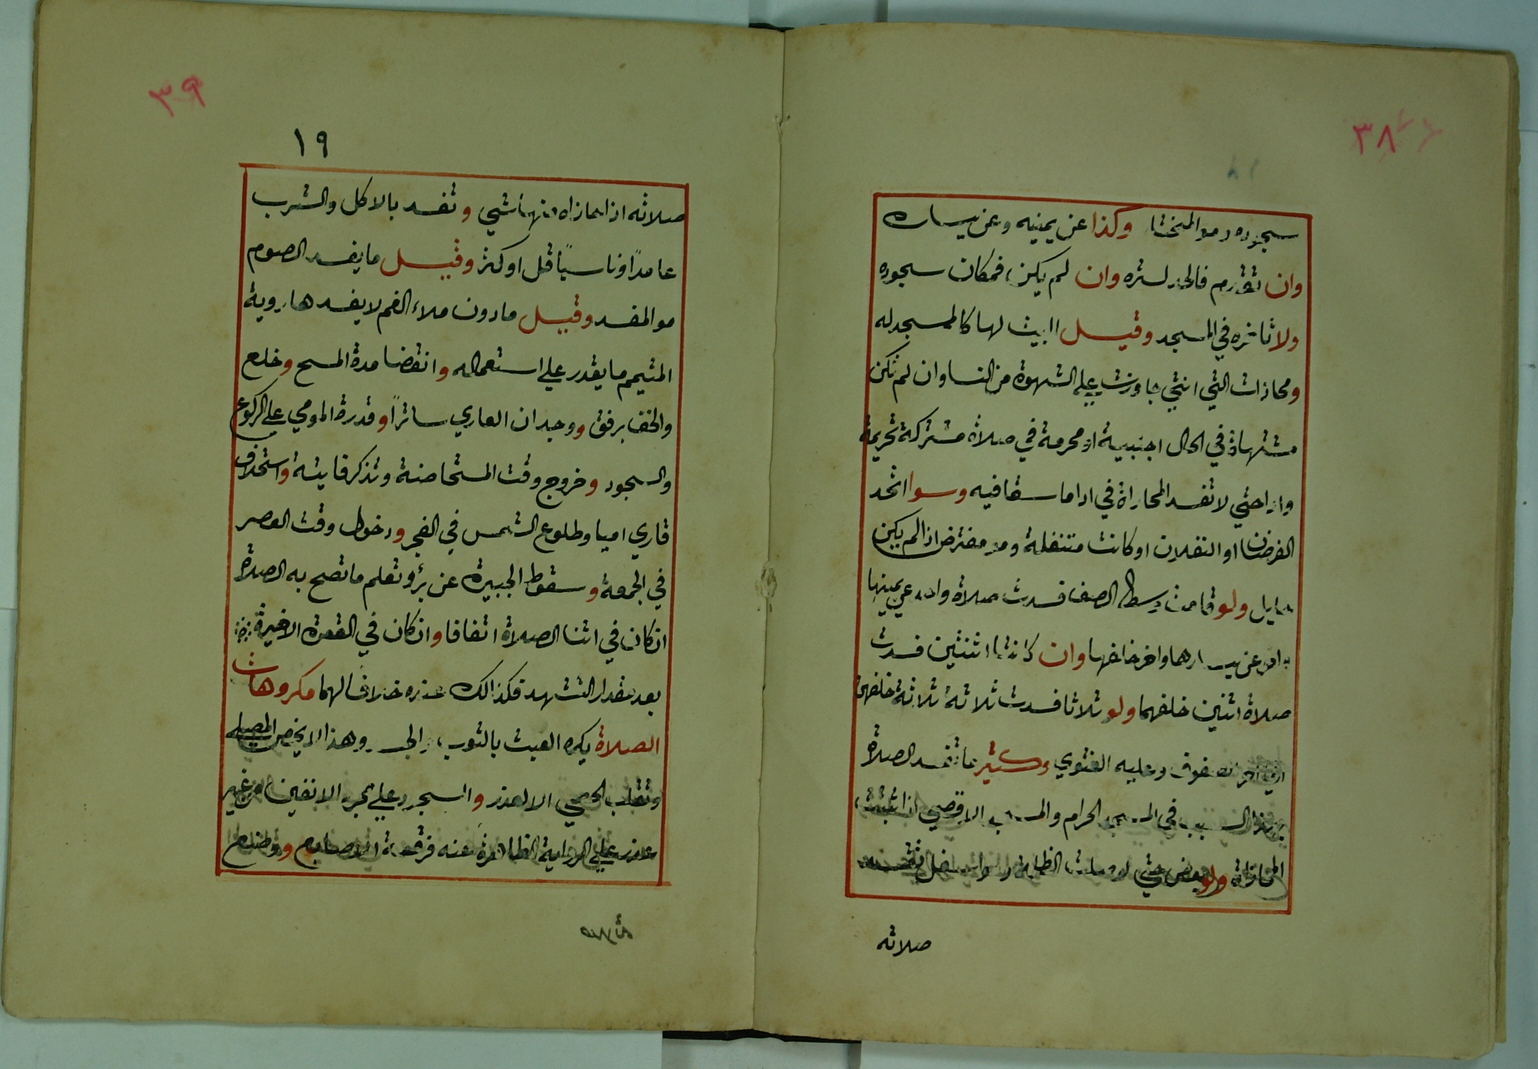 ٣٨
سجوده وهو المختار وكذا عن يمينه وعن يساره
وان تقدم فالحد لستره وان لم يكن فمكان سجوده
ولا تاخره في المسجد وقيل البيت لها كالمسجد له
ومحاذات التي انتي جاوزت على الشهوة من النسا وان لم تكن
مشتهاة في الحال اجنبية او محرمة في صلاة مشتركة تحريمة
وادا حتي لا تفسد المحاذاة في ادا ما سقا فيه وسوا اتحد
الفرضان او النفلان او كانت متنفلة وهو مفترض اذا لم يكن
حايل ولو قامت وسط الصف فسدت صلاة واحد عن يمينها
واخر عن يسارها واخر خلفها وان كانتا اثنتين فسدت
صلاة اثنين خلفهما ولو ثلاثا فسدت ثلاثة ثلاثة خلفهن
الي اخر الصفوف وعليه الفتوي وكثير ما تفسد الصلاة
بهذا السبب في المسجد الحرام والمسجد الاقصي اذا ثبتت
المحاذاة ولو ببعض حتي لو صلت الظلة اسفل
صلاته
٣٩
١٩
صلاته اذا حاذاه منها شي وتفسد بالاكل والشرب
عامدًا وناسيًا قل او كثر وقيل ما يفسد الصوم
هو المفسد وقيل ما دون ملاء الفم لا يفسدها وروية
المتيمم ما يقدر علي استعماله وانقضا مدة المسح وخلع
والخف برفق ووجدان العاري ساترًا وقدرة المومي علي الركوع
والسجود وخروج وقت المستحاضة وتذكر فايتة واستخلاف
قاري اميا وطلوع الشمس في الفجر ودخول وقت العصر
في الجمعة وسقوط الجبيرة عن برؤ وتعلم ما تصح به الصلاة
ان كان في اثنا الصلاة اتفاقا وان كان في القعدة الاخيرة
بعد مقدار التشهد فكذالك عنده خلافا لهما مكروهات
الصلاة يكره العبث بالثوب وهذا لا يخص المصلي
وتقلب الحصي الا لعذر والسجود علي من غير
عذر علي الرواية الظاهرة عنه فرقعة الاصابع ووضع